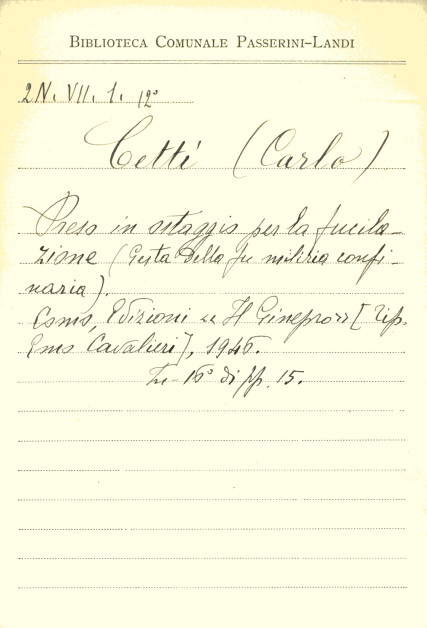 BIBLIOTECA COMUNALE PASSERINI-LANDI
2N. VII. 1. 12°
Cetti (Carlo)
Preso in ostaggio per la fucila-
zione (Gesta della fu milizia confi-
naria).
Como, Edizioni "Il Ginepro" [Tip.
Emo Cavalieri], 1946.
In-16° di pp. 15.